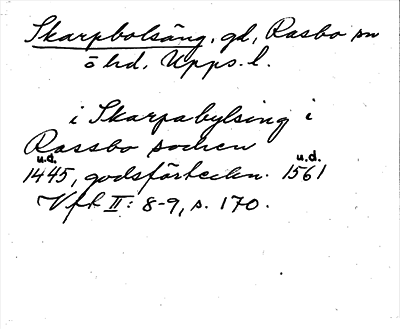 Skarpbolsäng, gd, Rasbo sn
ö hd, Upps. l.
i Skarpabylsing i
Rassbo socken
u.d. u.d.
1445, godsförteckn. 1561
Vfl II: 8-9, s. 170.